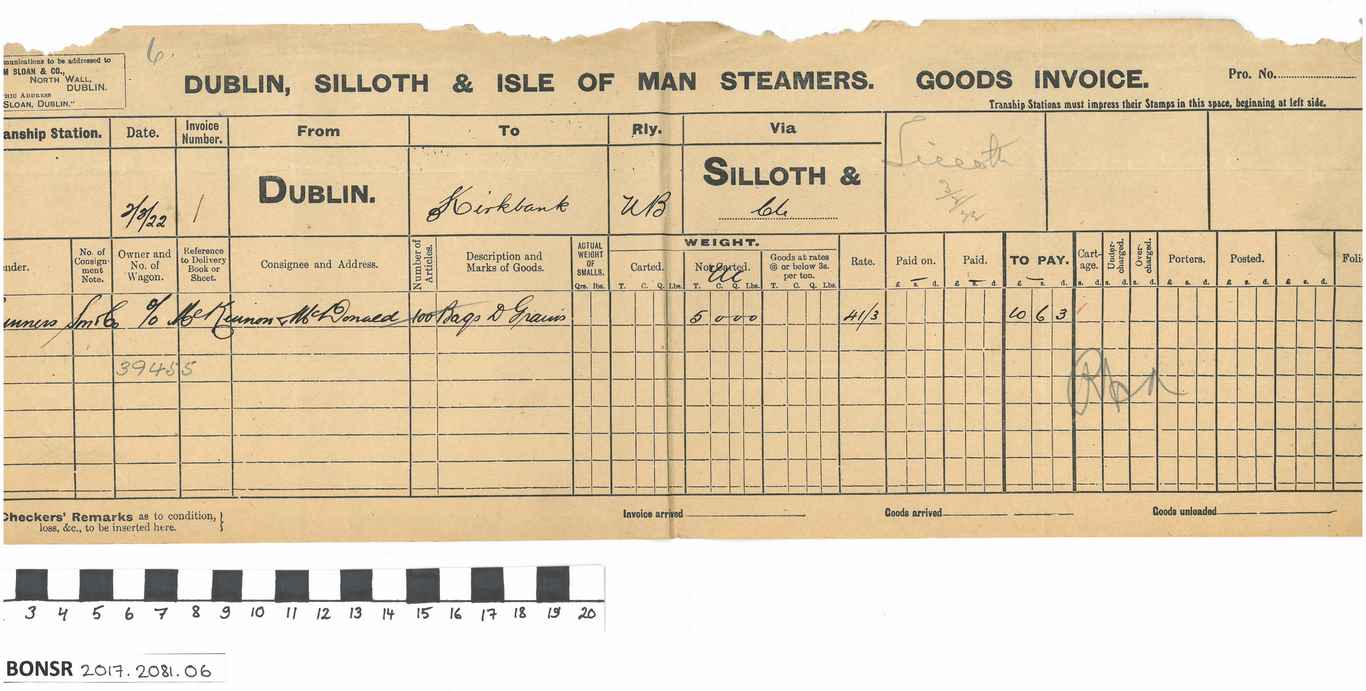 6.
munications to be addressed to
M SLOAN & CO.,
NORTH WALL,
DUBLIN.
PHIC ADDRESS
SLOAN, DUBLIN."
DUBLIN, SILLOTH & ISLE OF MAN STEAMERS. GOODS INVOICE.
Pro. No.
Tranship Stations must impress their Stamps in this space, beginning at left side.
anship Station. Date. Invoice Number. From To Rly. Via
2/3/22 1 DUBLIN. Kirkbank NB SILLOTH &
Silloth
nder. No. of Consignment Note. Owner and No. of Wagon. Reference to Delivery Book or Sheet. Consignee and Address. Number of Articles. Description and Marks of Goods. ACTUAL WEIGHT OF SMALLS. WEIGHT. Rate. Paid on. Paid. TO PAY. Cartage. Undercharged. Overcharged. Porters. Posted. Foli
Carted. Not Carted. Goods at rates @ or below 3s. per ton.
Qrs. lbs. T. C. Q. Lbs. T. C. Q. Lbs. T. C. Q. Lbs. £ s. d. £ s. d. £ s. d. s. d. s. d. s. d. £ s. d. £ s. d.
nners c/o McKinnon & McDonald 100 Bags D Grains 5 0 0 0 41/3 10 6 3
39455
Checkers' Remarks as to condition,
loss, &c., to be inserted here.
Invoice arrived Goods arrived Goods unloaded
3 4 5 6 7 8 9 10 11 12 13 14 15 16 17 18 19 20
BONSR 2017.2081.06